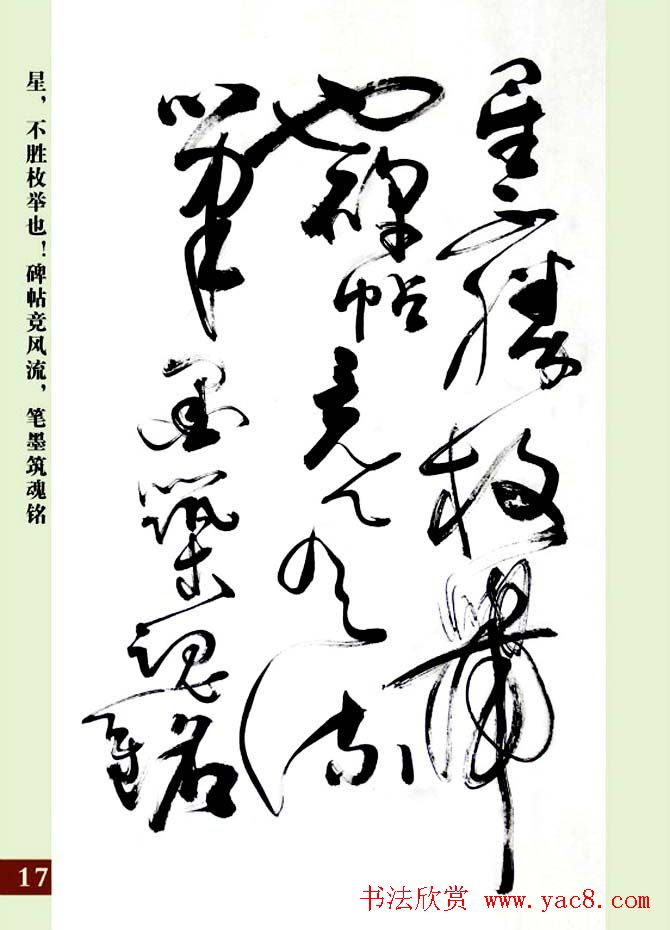 星不勝枚舉
也碑帖竞风流
筆墨築魂銘
星，不胜枚举也！碑帖竞风流，笔墨筑魂铭
17
书法欣赏 www.yac8.com